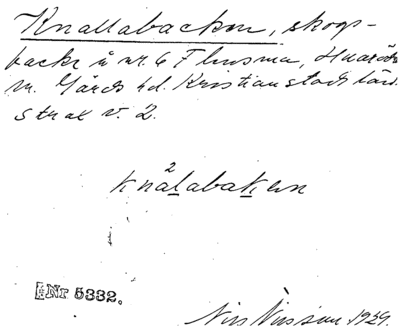 Knallabacken, skogs-
backe å nr. 6 Flinsma, Huaröds
sn. Gärds hd. Kristianstads län.
strax v. 2.
2
knalabaken
Nr 5332.
Nils Nilsson 1929.